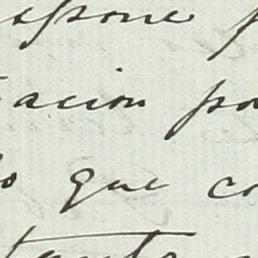 spone p
acion po
o que co
tanto